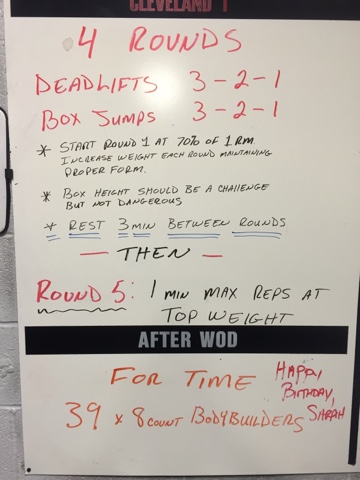 CLEVELAND 1
4 ROUNDS
DEADLIFTS 3-2-1
BOX JUMPS 3-2-1
* START ROUND 1 AT 70% OF 1RM.
INCREASE WEIGHT EACH ROUND MAINTAINING
PROPER FORM.
* BOX HEIGHT SHOULD BE A CHALLENGE
BUT NOT DANGEROUS
* REST 3 MIN BETWEEN ROUNDS
— THEN —
ROUND 5: 1 MIN MAX REPS AT
TOP WEIGHT
AFTER WOD
FOR TIME
39 x 8 COUNT BODYBUILDERS
HAPPY
BIRTHDAY,
SARAH